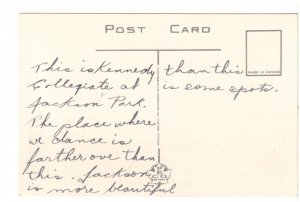 POST CARD
MADE IN CANADA
This is Kennedy
Collegiate at
Jackson Park.
The place where
we dance is
farther ove than
this. Jackson
is more beautiful
than this
is some spots.